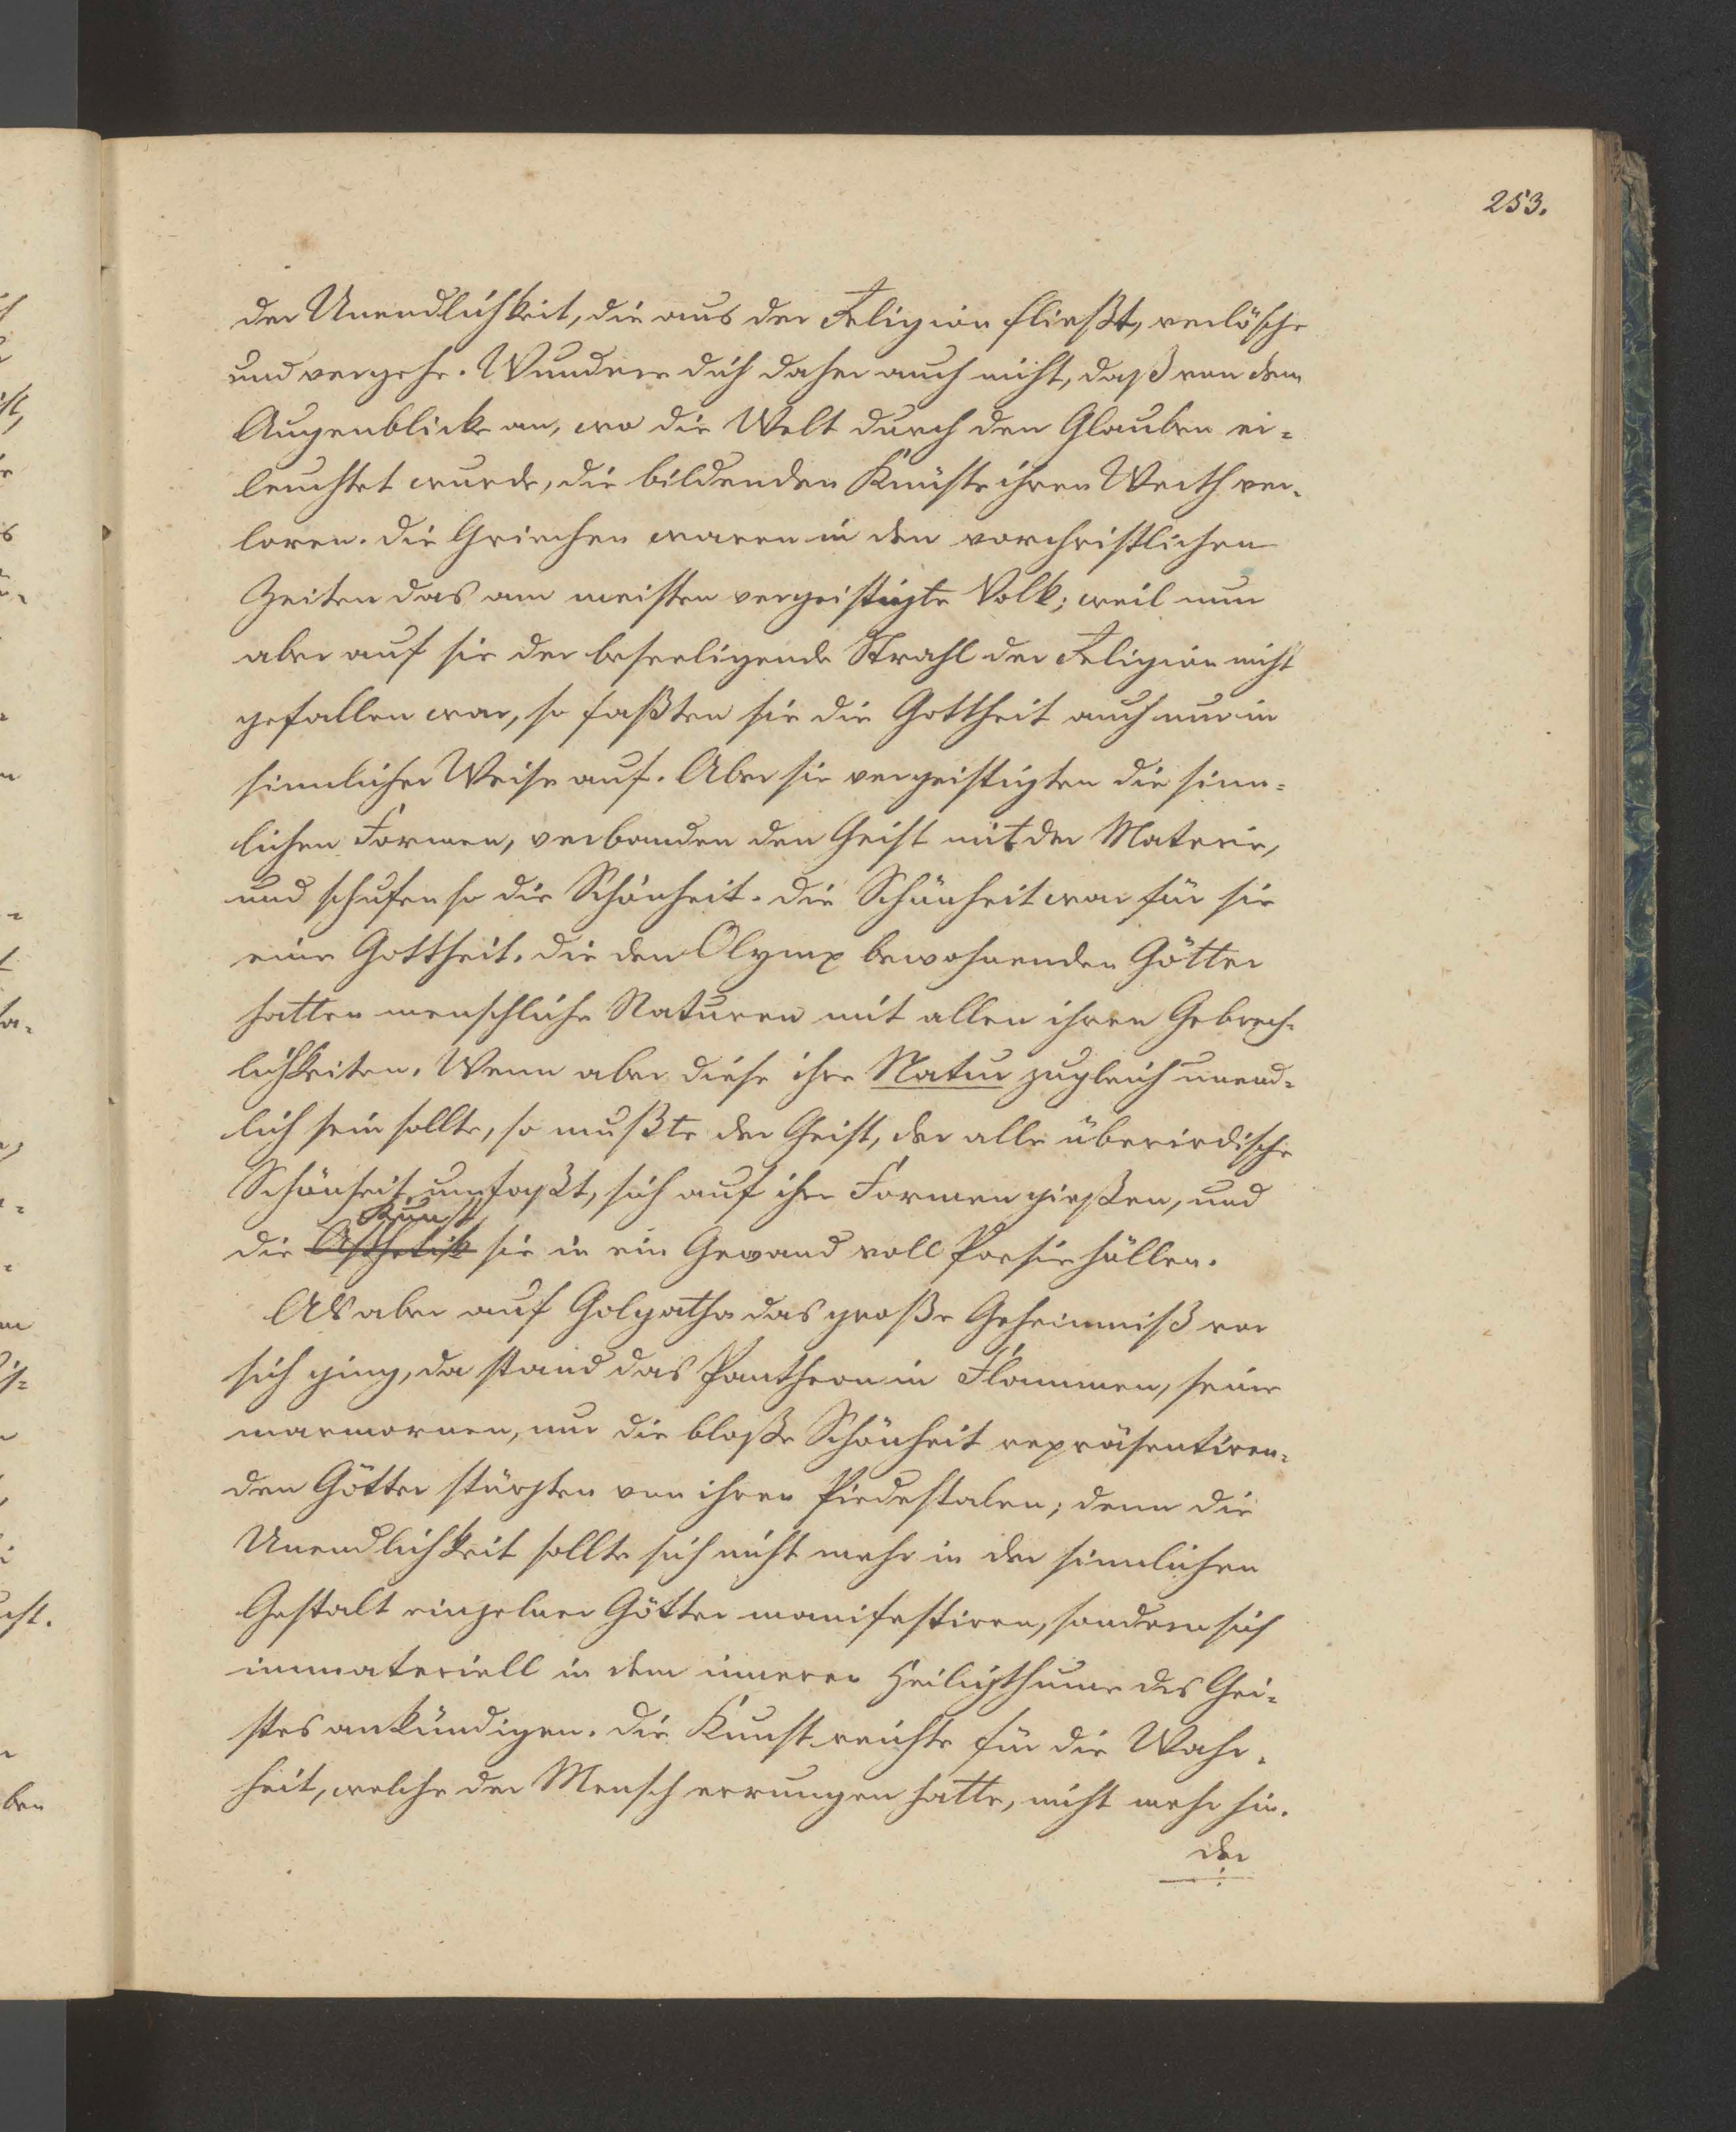 253.
der Unendlichkeit, die aus der Religion fließt, verlösche
und vergehe. Wundere dich daher auch nicht, daß von dem
Augenblicke an, wo die Welt durch den Glauben er-
leuchtet wurde, die bildenden Künste ihren Werth ver-
loren. Die Griechen waren in den vorchristlichen
Zeiten das am meisten vergeistigte Volk; weil nun
aber auf sie der beseeligende Strahl der Religion nicht
gefallen war, so faßten sie die Gottheit auch nur in
sinnlicher Weise auf. Aber sie vergeistigten die sinn-
lichen Formen, verbanden den Geist mit der Materie,
und schufen so die Schönheit. Die Schönheit war für sie
eine Gottheit. Die den Olymp bewohnenden Götter
hatten menschliche Naturen mit allen ihren Gebrech-
lichkeiten. Wenn aber diese ihre Natur zugleich unend-
lich sein sollte, so mußte der Geist, der alle überirdische
Schönheit umfaßt, sich auf ihre Formen gießen, und
Kunst
die Ästhetik sie in ein Gewand voll Poesie hüllen.
Als aber auf Golgatha das große Geheimniß vor
sich ging, da stand das Pantheon in Flammen, seine
marmornen, nur die bloße Schönheit repräsentiren-
den Götter stürzten von ihren Piedestalen; denn die
Unendlichkeit sollte sich nicht mehr in der sinnlichen
Gestalt einzelner Götter manifestiren, sondern sich
immateriell in dem inneren Heiligthume des Gei-
stes ankündigen. Die Kunst reichte für die Wahr-
heit, welche der Mensch errungen hatte, nicht mehr hin.
Der